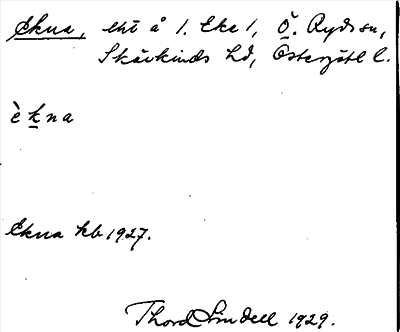 Ekna, lht å 1. Eke 1, Ö. Ryds sn,
Skärkinds hd, Östergötl l.
èk̲na
Ekna kb 1927.
Thord Lindell 1929.